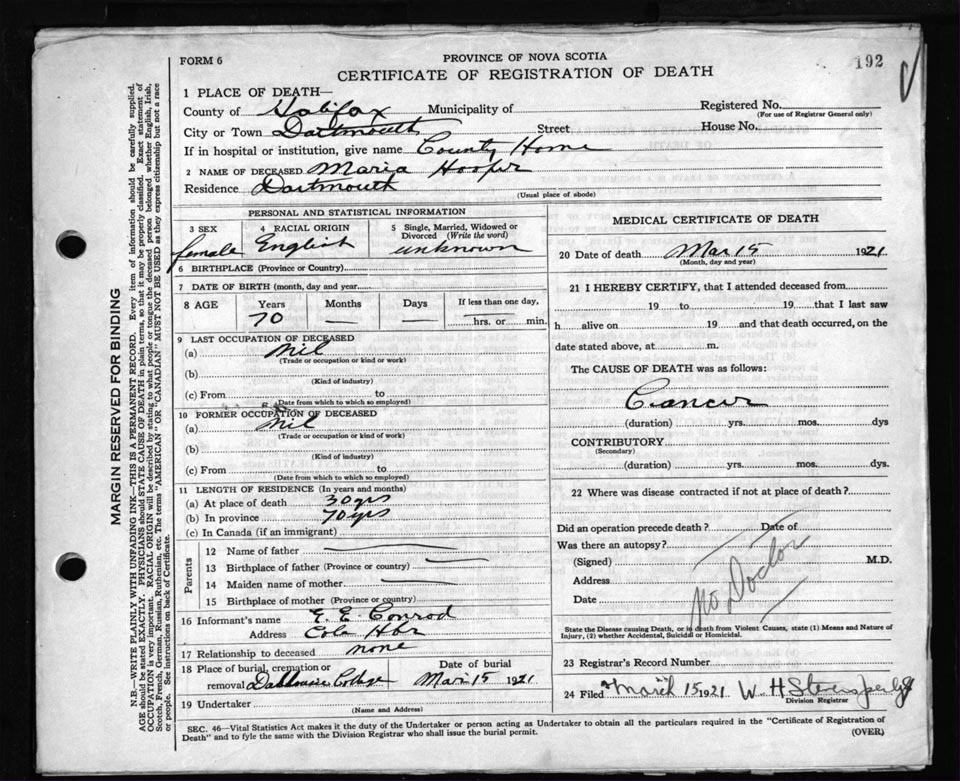 FORM 6
PROVINCE OF NOVA SCOTIA
192
CERTIFICATE OF REGISTRATION OF DEATH
MARGIN RESERVED FOR BINDING
N.B.—WRITE PLAINLY WITH UNFADING INK—THIS IS A PERMANENT RECORD. Every item of information should be carefully supplied.
AGE should be stated EXACTLY. PHYSICIANS should STATE CAUSE OF DEATH in plain terms, so that it may be properly classified. Exact statement of
OCCUPATION is very important. RACIAL ORIGIN will be described by stating to what people or tongue the deceased person belonged whether English, Irish,
Scotch, French, German, Russian, Ruthenian, etc. The terms "AMERICAN" OR "CANADIAN" MUST NOT BE USED as they express citizenship but not a race
or people. See instructions on back of Certificate.
1 PLACE OF DEATH—
County of Halifax Municipality of Registered No.
(For use of Registrar General only)
City or Town Dartmouth Street House No.
If in hospital or institution, give name County Home
2 NAME OF DECEASED Maria Hooper
Residence Dartmouth
(Usual place of abode)
PERSONAL AND STATISTICAL INFORMATION
3 SEX
female
4 RACIAL ORIGIN
English
5 Single, Married, Widowed or
Divorced (Write the word)
unknown
6 BIRTHPLACE (Province or Country)
7 DATE OF BIRTH (month, day and year)
8 AGE
Years Months Days If less than one day,
70 — — hrs. or min.
9 LAST OCCUPATION OF DECEASED
(a) Nil
(Trade or occupation or kind or work)
(b)
(Kind of industry)
(c) From to
(Date from which to which so employed)
10 FORMER OCCUPATION OF DECEASED
(a) Nil
(Trade or occupation or kind of work)
(b)
(Kind of industry)
(c) From to
(Date from which to which so employed)
11 LENGTH OF RESIDENCE (In years and months)
(a) At place of death 30 yrs
(b) In province 70 yrs
(c) In Canada (if an immigrant)
Parents
12 Name of father
13 Birthplace of father (Province or country)
14 Maiden name of mother
15 Birthplace of mother (Province or country)
16 Informant's name E. E. Conrod
Address Cole Hbr
17 Relationship to deceased none
18 Place of burial, cremation or
removal Dalhousie College
Date of burial
Mar 15 1921
19 Undertaker
(Name and Address)
MEDICAL CERTIFICATE OF DEATH
20 Date of death Mar 15 1921
(Month, day and year)
21 I HEREBY CERTIFY, that I attended deceased from
19 to 19 that I last saw
h alive on 19 and that death occurred, on the
date stated above, at m.
The CAUSE OF DEATH was as follows:
Cancer
(duration) yrs. mos. dys
CONTRIBUTORY
(Secondary)
(duration) yrs. mos. dys.
22 Where was disease contracted if not at place of death?
Did an operation precede death? Date of
Was there an autopsy?
(Signed) M.D.
Address
Date
No Doctor
State the disease causing Death, or is death from Violent Causes, state (1) Means and Nature of
Injury, (2) whether Accidental, Suicidal or Homicidal.
23 Registrar's Record Number
24 Filed March 15 1921 W. H.
Division Registrar
SEC. 46—Vital Statistics Act makes it the duty of the Undertaker or person acting as Undertaker to obtain all the particulars required in the "Certificate of Registration of
Death" and to fyle the same with the Division Registrar who shall issue the burial permit.
(OVER)